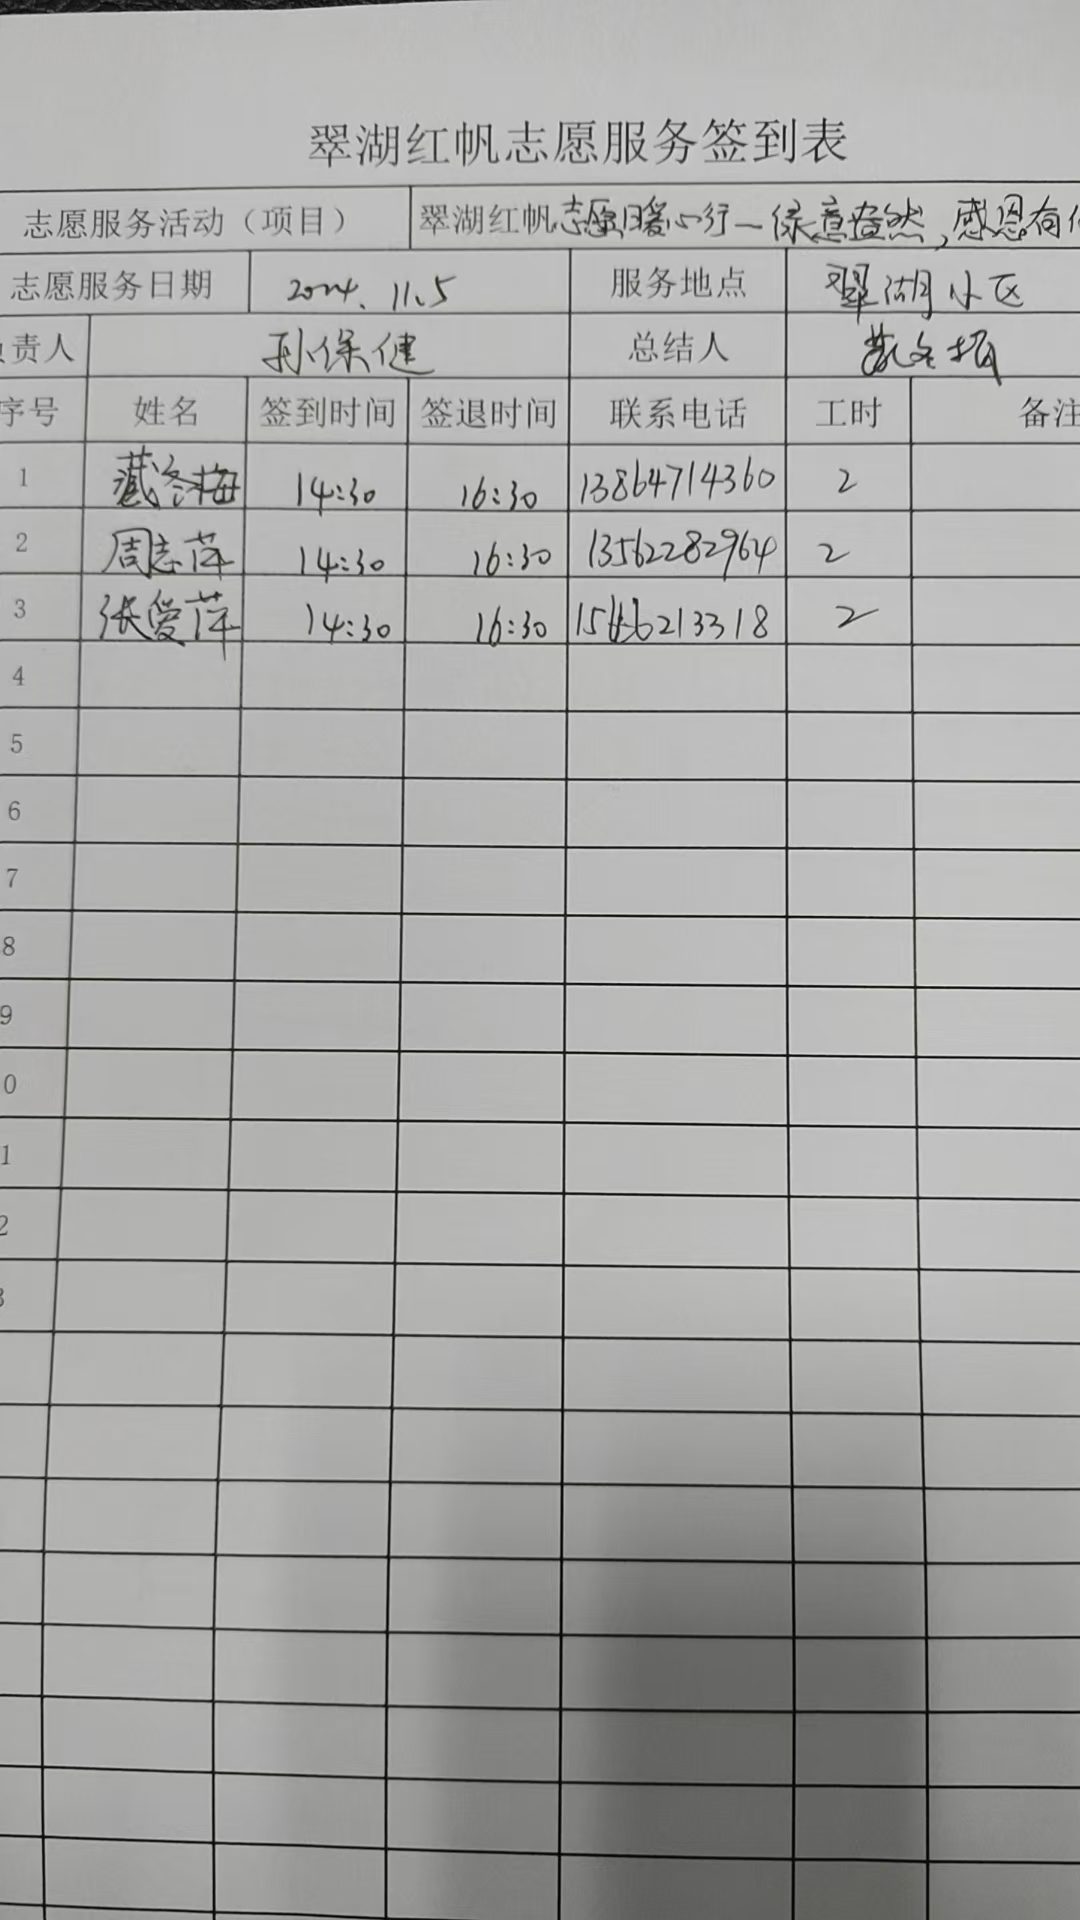 翠湖红帆志愿服务签到表
志愿服务活动（项目） 翠湖红帆志愿暖心行—绿意盎然，感恩有
志愿服务日期 2024.11.5 服务地点 翠湖小区
责人 孙保健 总结人 藏冬梅
序号 姓名 签到时间 签退时间 联系电话 工时 备注
1 藏冬梅 14:30 16:30 13864714360 2
2 周志萍 14:30 16:30 13562282964 2
3 张爱萍 14:30 16:30 2
4
5
6
7
8
9
0
1
2
3